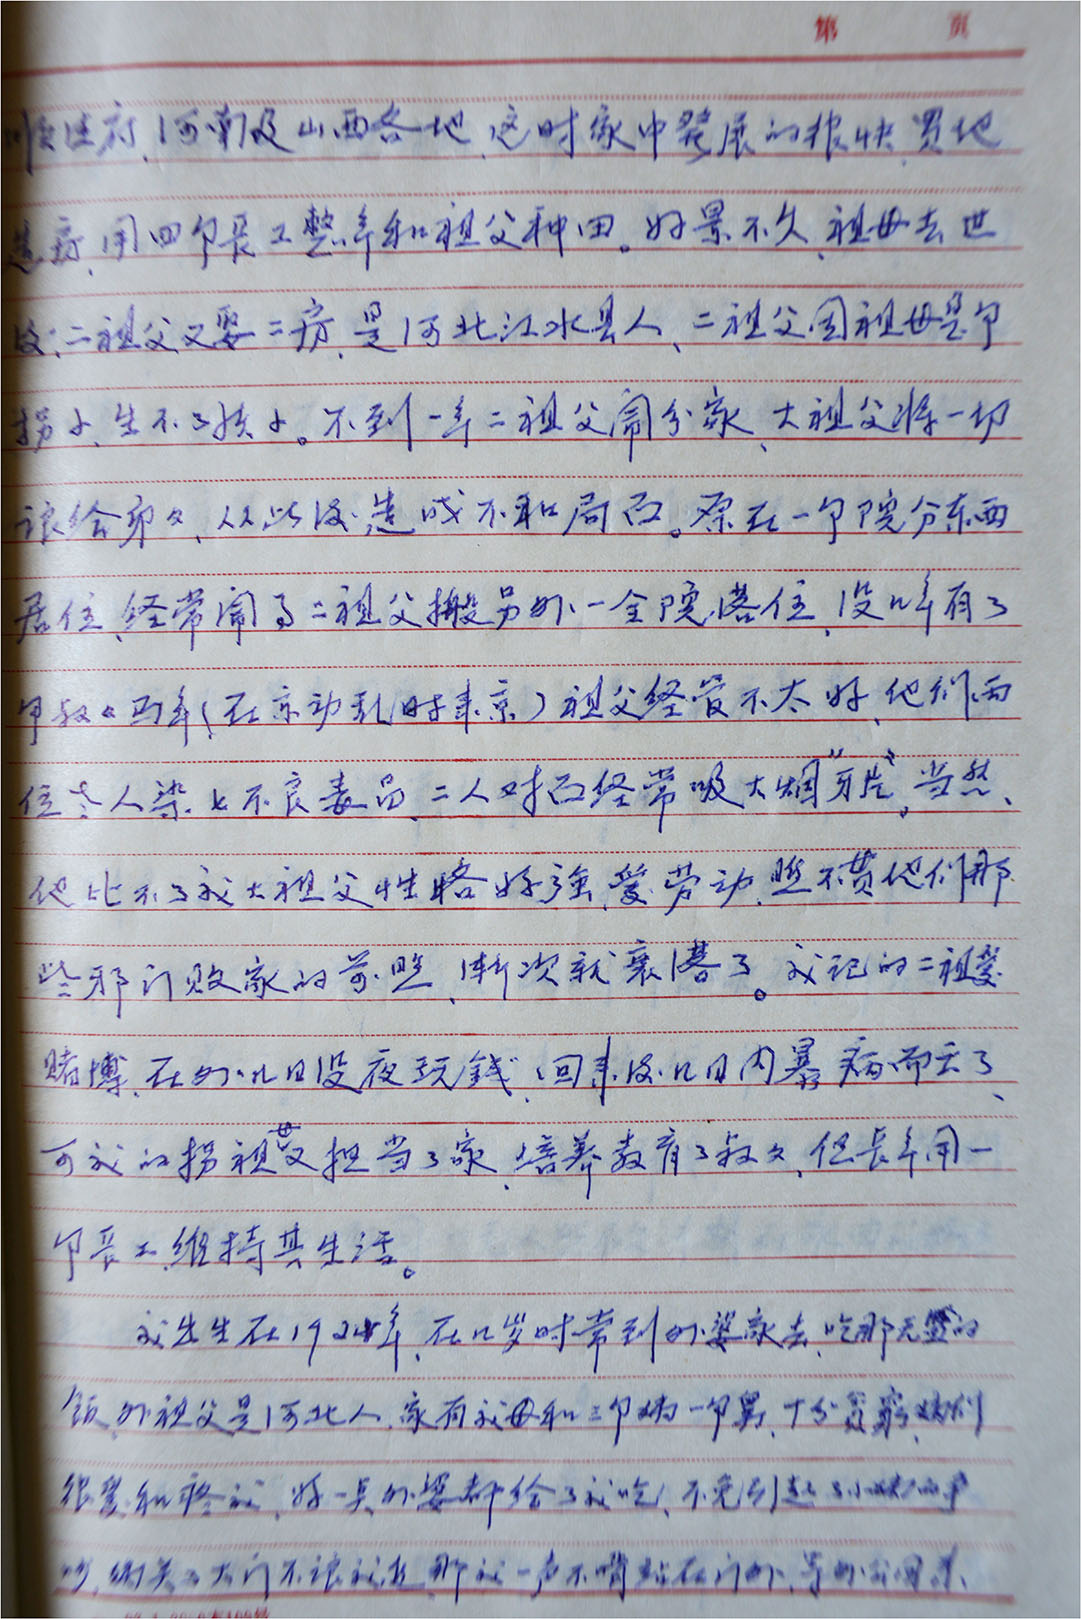 第 页
河南及山西各地、这时家中發展的很快、买地
造房、用四个長工整年和祖父种田。好景不久、祖母去世
后、二祖父又娶二房、是河北江水县人、二祖父因祖母是个
拐子、生不了孩子。不到一年二祖父闹分家、大祖父将一切
讓给弟々、从此后造成不和局面。原在一个院分东西
居住、经常闹了二祖父搬另外一全院落住、没几年有了
个叔々（在京动乱时来京）祖父经营不太好、他们两
位老人染上不良毒品、二人对面经常吸大烟“牙片”。当然、
他比不了我大祖父性格好強、爱劳动、照不貫他们那
些邪门败家的前照、渐次就衰落了。我记的二祖爱
赌博、在外几日没夜玩錢、回来后几日内暴病而亡了、
可我的拐祖母又担当了家、培养教育了叔々、但長年用一
个長工、维持其生活。
我出生在19 年、在几岁时常到外婆家去、吃那无 的
饭、外祖父是河北人、家有我母和三个姨一个舅、十分贫窮、姨们
很爱和疼我、好一点外婆都给了我吃、不免引起了小姨的争
吵、 关上大门不讓我进、那我一声不哨站在门外、等外公回来、